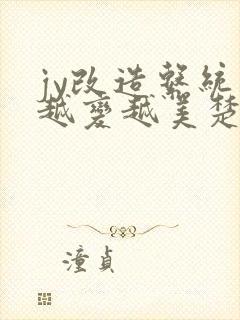 jy改造系統
越變越美楚
潼貞